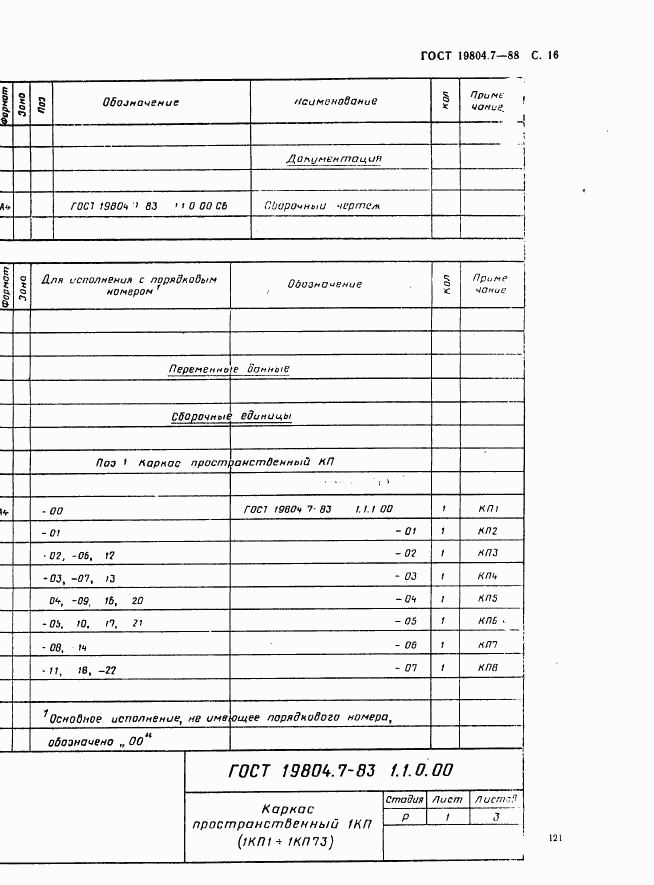 ГОСТ 19804.7—88 С. 16
Формат Зона Поз Обозначение Наименование Кол Приме
чание
Документация
А4 ГОСТ 19804 83 1 0 00 СБ Сборочный чертеж
Формат Зона Для исполнения с порядковым Обозначение Кол Приме
номером¹ чание
Переменные данные
Сборочные единицы
Поз 1 Каркас пространственный КП
А4 -00 ГОСТ 19804 7-83 1.1.1 00 1 КП1
-01 -01 1 КП2
-02, -06, 12 -02 1 КП3
-03, -07, 13 -03 1 КП4
04, -09, 16, 20 -04 1 КП5
-05, 10, 17, 21 -05 1 КП6
-08, 14 -06 1 КП7
-11, 18, -22 -07 1 КП8
¹Основное исполнение, не имеющее порядкового номера,
обозначено „00“
ГОСТ 19804.7-83 1.1.0.00
Каркас
пространственный 1КП
(1КП1 ÷ 1КП73)
Стадия Лист Листов
Р 1 3
121